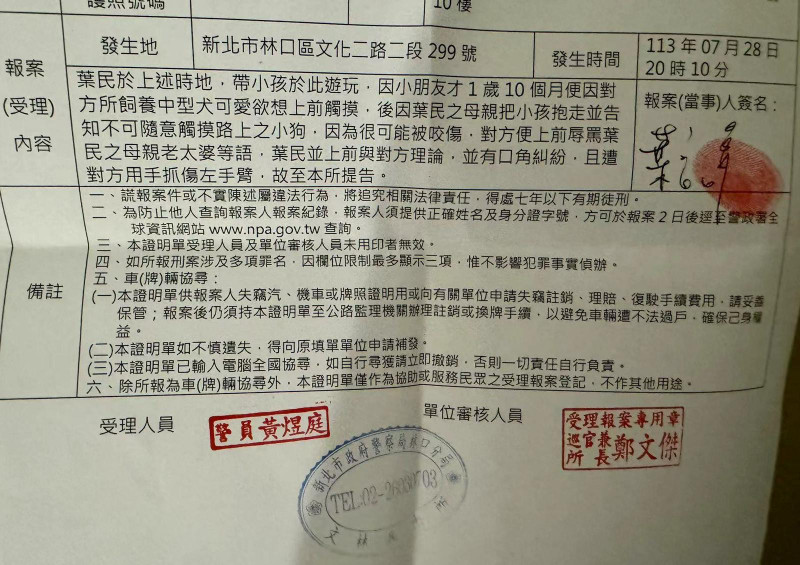 護照號碼
10樓
發生地
新北市林口區文化二路二段 299 號
發生時間
113 年 07 月 28 日
20 時 10 分
報案
(受理)
內容
葉民於上述時地，帶小孩於此遊玩，因小朋友才 1 歲 10 個月便因對
方所飼養中型犬可愛欲想上前觸摸，後因葉民之母親把小孩抱走並告
知不可隨意觸摸路上之小狗，因為很可能被咬傷，對方便上前辱罵葉
民之母親老太婆等語，葉民並上前與對方理論，並有口角糾紛，且遭
對方用手抓傷左手臂，故至本所提告。
報案(當事)人簽名：
備註
一、謊報案件或不實陳述屬違法行為，將追究相關法律責任，得處七年以下有期徒刑。
二、為防止他人查詢報案人報案紀錄，報案人須提供正確姓名及身分證字號，方可於報案 2 日後逕至警政署全
球資訊網站 www.npa.gov.tw 查詢。
三、本證明單受理人員及單位審核人員未用印者無效。
四、如所報刑案涉及多項罪名，因欄位限制最多顯示三項，惟不影響犯罪事實偵辦。
五、車(牌)輛協尋：
(一)本證明單供報案人失竊汽、機車或牌照證明用或向有關單位申請失竊註銷、理賠、復駛手續費用，請妥善
保管；報案後仍須持本證明單至公路監理機關辦理註銷或換牌手續，以避免車輛遭不法過戶，確保己身權
益。
(二)本證明單如不慎遺失，得向原填單單位申請補發。
(三)本證明單已輸入電腦全國協尋，如自行尋獲請立即撤銷，否則一切責任自行負責。
六、除所報為車(牌)輛協尋外，本證明單僅作為協助或服務民眾之受理報案登記，不作其他用途。
受理人員
警員黃煜庭
單位審核人員
受理報案專用章
巡官兼
所長
鄭文傑
新北市政府警察局林口分局
TEL:02-26030703
文林